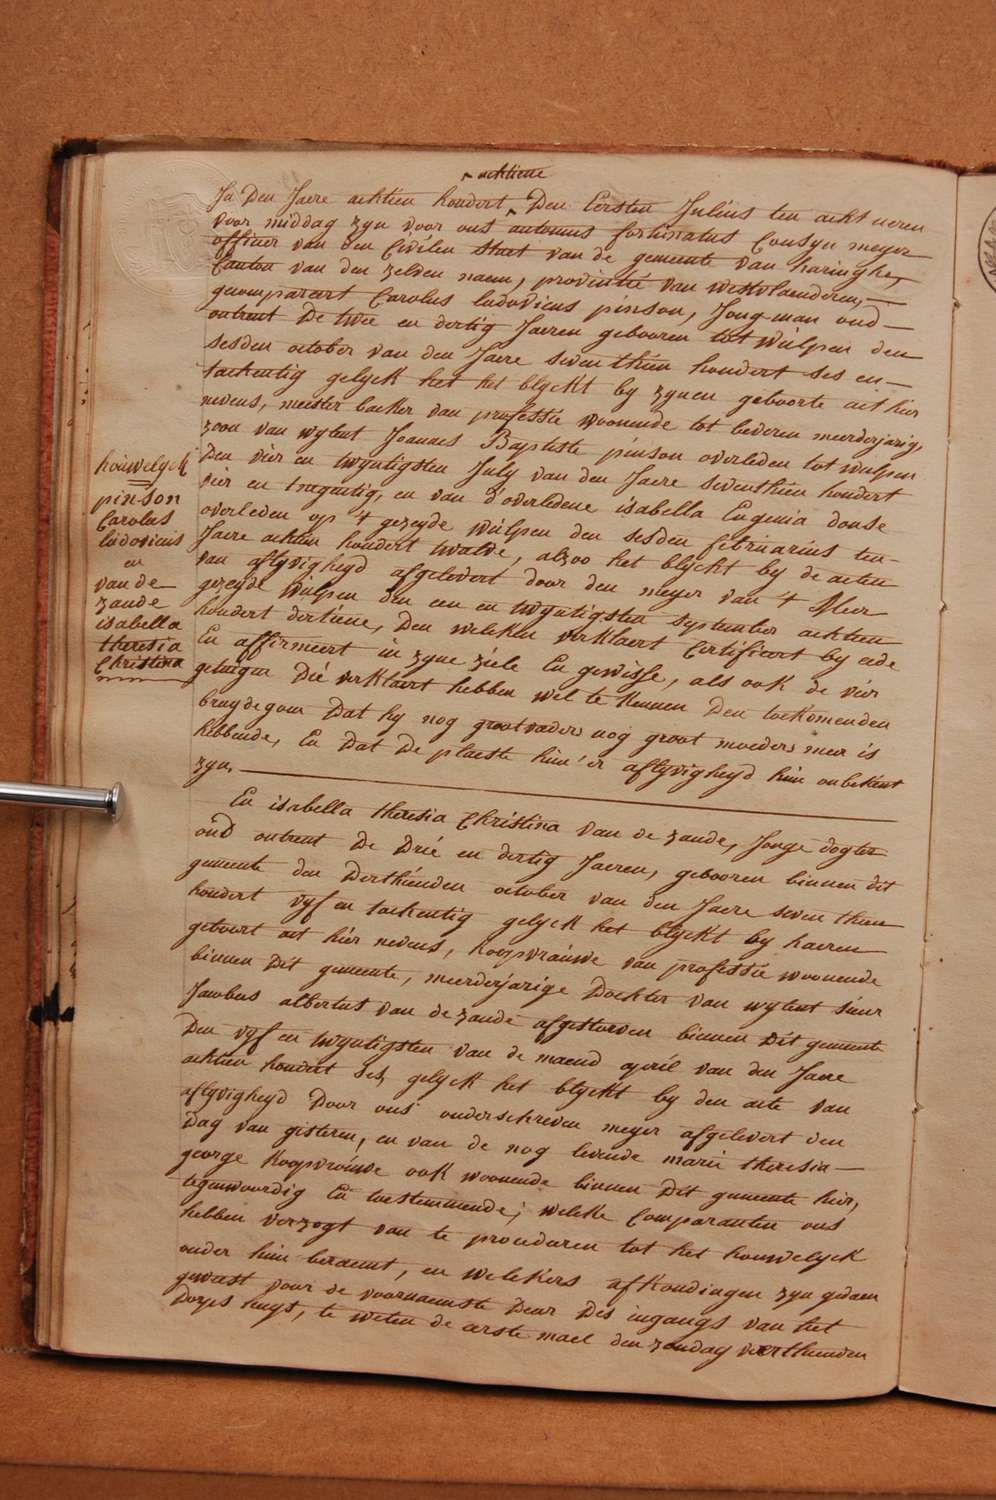 achtiene
In Den Jaere achtien hondert Den Eersten Julius ten acht uren
voor middag zyn voor ons antonius fortunatus Cousyn meyer
officier van den Civilen Staet van de gemeente van haringhe,
Canton van den zelden naem, provintie van westvlaenderen,
gecompareert Carolus ludovicus pinson, Jong-man oud
ontrent De twee en dertig Jaeren gebooren tot Wulpen den
sesden october van den Jaere seventhien hondert ses en
tachentig gelyck het het blyckt by zynen geboorte act hier
nevens, meester backer van professie woonende tot beveren meerderjarig,
zoon van wylent Joannes Baptiste pinson overleden tot wulpen
Den vier en twyntigsten July van den Jaere seventhien hondert
vier en tnegentig, en van d'overledene isabella Eugenia donse
overleden op 't gezeyde Wulpen den sesden februarius ten
Jaere achtien hondert twalve, alzoo het blyckt by de acten
van aflyvigheyd afgelevert door den meyer van 't Meer
gezeyde Wulpen den een en twyntigsten september achtien
hondert dertiene, Den welcken verklaert Certificert by eide
En affirmeert in zyne ziele En gewisse, als ook de vier
getuigen Die verklaert hebben wel te kennen Den toekomenden
bruydegom Dat hy nog grootvaders nog groot moeders meer is
hebbende, En Dat De plaetste hun'er aflyvigheyd hun onbekent
zyn.
houwelyck
pinson
Carolus
ludovicus
en
van de
zande
isabella
theresia
Christina
En isabella theresia Christina van de zande, Jonge dogter
oud ontrent De Drie en dertig Jaeren, gebooren binnen dit
gemeente den Derthienden october van den Jaere seven thien
hondert vyf en tachentig gelyck het blyckt by haeren
geboort act hier nevens, koopvrauwe van professie woonende
binnen Dit gemeente, meerderjarige Dochter van wylent sieur
Jacobus albertus van de zande afgestorven binnen Dit gemeente
Den vyf en twyntigsten van de maend april van den Jaere
achtien hondert ses, gelyck het blyckt by den acte van
aflyvigheyd Door ons onderschreven meyer afgelevert den
Dag van gisteren, en van de nog levende marie theresia
george Koopvrouwe ook woonende binnen Dit gemeente hier,
tegenwoordig En toestemmende; welcke Comparanten ons
hebben verzogt van te procederen tot het houwelyck
onder hun beraemt, en welckers afkondingen zyn gedaen
geweest voor de voornaemste Deur Des ingangs van het
Dorps huys, te weten de eerste mael den zondag veerthienden